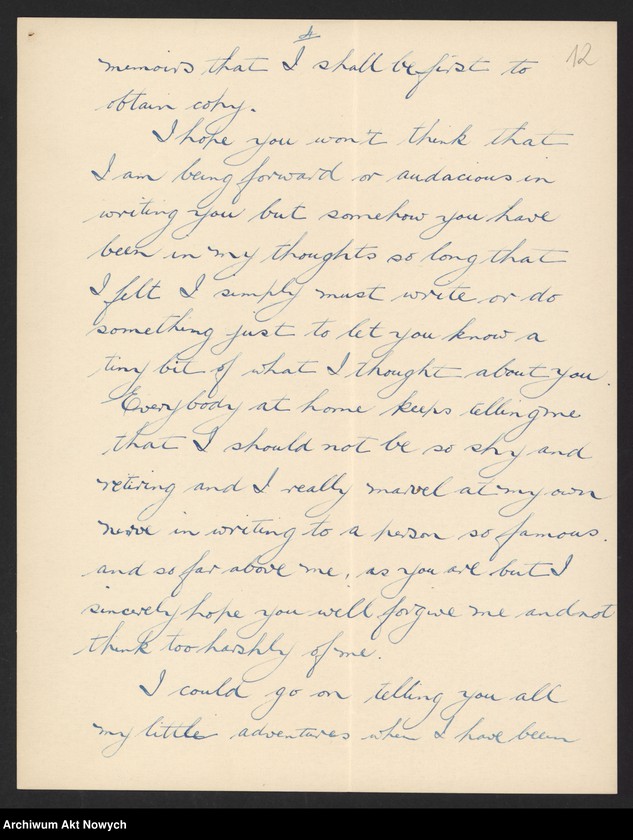 4
12
memoirs that I shall be first to
obtain copy.
I hope you won't think that
I am being forward or audacious in
writing you but somehow you have
been in my thoughts so long that
I felt I simply must write or do
something just to let you know a
tiny bit of what I thought about you.
Everybody at home keeps telling me
that I should not be so shy and
retiring and I really marvel at my own
nerve in writing to a person so famous.
and so far above me, as you are but I
sincerely hope you will forgive me and not
think too harshly of me.
I could go on telling you all
my little adventures when I have been
Archiwum Akt Nowych